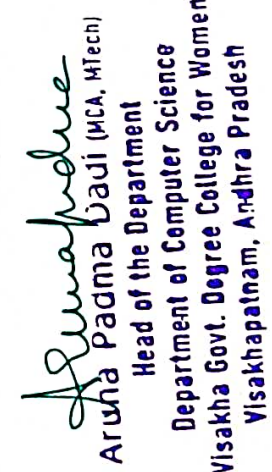 Aruna Padma Dadi (MCA, MTech)
Head of the Department
Department of Computer Science
Visakha Govt. Degree College for Women
Visakhapatnam, Andhra Pradesh